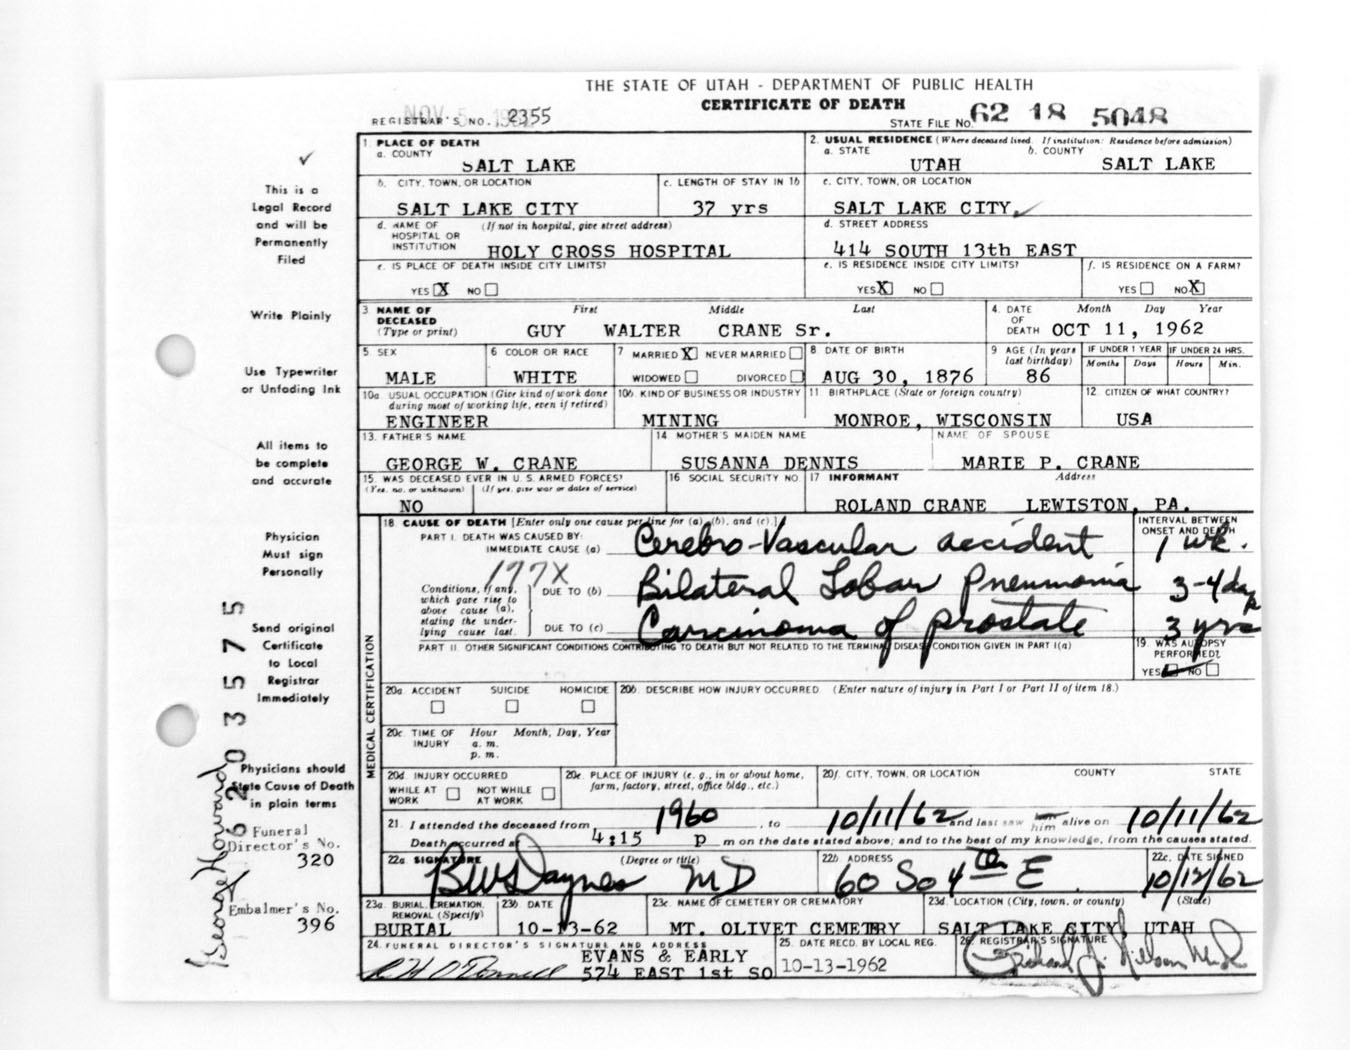 THE STATE OF UTAH - DEPARTMENT OF PUBLIC HEALTH
CERTIFICATE OF DEATH
NOV 5
REGISTRAR'S NO. 2355
STATE FILE NO. 62 18 5048
This is a
Legal Record
and will be
Permanently
Filed
Write Plainly
Use Typewriter
or Unfading Ink
All items to
be complete
and accurate
Physician
Must sign
Personally
Send original
Certificate
to Local
Registrar
Immediately
Physicians should
State Cause of Death
in plain terms
Funeral
Director's No.
320
Embalmer's No.
396
George Howard
62 03575
1. PLACE OF DEATH
a. COUNTY
SALT LAKE
2. USUAL RESIDENCE (Where deceased lived. If institution: Residence before admission)
a. STATE b. COUNTY
UTAH SALT LAKE
b. CITY, TOWN, OR LOCATION
SALT LAKE CITY
c. LENGTH OF STAY IN 1b
37 yrs
c. CITY, TOWN, OR LOCATION
SALT LAKE CITY,
d. NAME OF HOSPITAL OR INSTITUTION (If not in hospital, give street address)
HOLY CROSS HOSPITAL
d. STREET ADDRESS
414 SOUTH 13th EAST
e. IS PLACE OF DEATH INSIDE CITY LIMITS?
YES X NO
e. IS RESIDENCE INSIDE CITY LIMITS?
YES X NO
f. IS RESIDENCE ON A FARM?
YES NO X
3. NAME OF DECEASED (Type or print)
First Middle Last
GUY WALTER CRANE Sr.
4. DATE OF DEATH Month Day Year
OCT 11, 1962
5. SEX
MALE
6 COLOR OR RACE
WHITE
7 MARRIED X NEVER MARRIED
WIDOWED DIVORCED
8 DATE OF BIRTH
AUG 30, 1876
9 AGE (In years last birthday)
86
IF UNDER 1 YEAR IF UNDER 24 HRS.
Months Days Hours Min.
10a. USUAL OCCUPATION (Give kind of work done during most of working life, even if retired)
ENGINEER
10b. KIND OF BUSINESS OR INDUSTRY
MINING
11 BIRTHPLACE (State or foreign country)
MONROE, WISCONSIN
12 CITIZEN OF WHAT COUNTRY?
USA
13. FATHER'S NAME
GEORGE W. CRANE
14 MOTHER'S MAIDEN NAME
SUSANNA DENNIS
NAME OF SPOUSE
MARIE P. CRANE
15 WAS DECEASED EVER IN U.S. ARMED FORCES?
(Yes, no, or unknown) (If yes, give war or dates of service)
NO
16 SOCIAL SECURITY NO.
17 INFORMANT Address
ROLAND CRANE LEWISTON, PA.
MEDICAL CERTIFICATION
18 CAUSE OF DEATH [Enter only one cause per line for (a), (b), and (c).]
INTERVAL BETWEEN ONSET AND DEATH
PART I. DEATH WAS CAUSED BY:
IMMEDIATE CAUSE (a) Cerebro-Vascular accident 1 wk.
177X
Conditions, if any, which gave rise to above cause (a), stating the underlying cause last.
DUE TO (b) Bilateral Lobar Pneumonia 3-4 days
DUE TO (c) Carcinoma of prostate 3 yrs
PART II. OTHER SIGNIFICANT CONDITIONS CONTRIBUTING TO DEATH BUT NOT RELATED TO THE TERMINAL DISEASE CONDITION GIVEN IN PART I(a)
19. WAS AUTOPSY PERFORMED?
YES NO
20a. ACCIDENT SUICIDE HOMICIDE
20b. DESCRIBE HOW INJURY OCCURRED. (Enter nature of injury in Part I or Part II of item 18.)
20c. TIME OF INJURY Hour Month, Day, Year
a. m.
p. m.
20d. INJURY OCCURRED
WHILE AT WORK NOT WHILE AT WORK
20e. PLACE OF INJURY (e. g., in or about home, farm, factory, street, office bldg., etc.)
20f. CITY, TOWN, OR LOCATION COUNTY STATE
21. I attended the deceased from 1960, to 10/11/62 and last saw him alive on 10/11/62
Death occurred at 4:15 p m on the date stated above; and to the best of my knowledge, from the causes stated.
22a. SIGNATURE (Degree or title)
BW Daynes MD
22b. ADDRESS
60 So 4th E
22c. DATE SIGNED
10/12/62
23a. BURIAL, CREMATION, REMOVAL (Specify)
BURIAL
23b. DATE
10-13-62
23c. NAME OF CEMETERY OR CREMATORY
MT. OLIVET CEMETERY
23d. LOCATION (City, town, or county) (State)
SALT LAKE CITY, UTAH
24. FUNERAL DIRECTOR'S SIGNATURE AND ADDRESS
EVANS & EARLY
574 EAST 1st SO
25. DATE RECD. BY LOCAL REG.
10-13-1962
26. REGISTRAR'S SIGNATURE